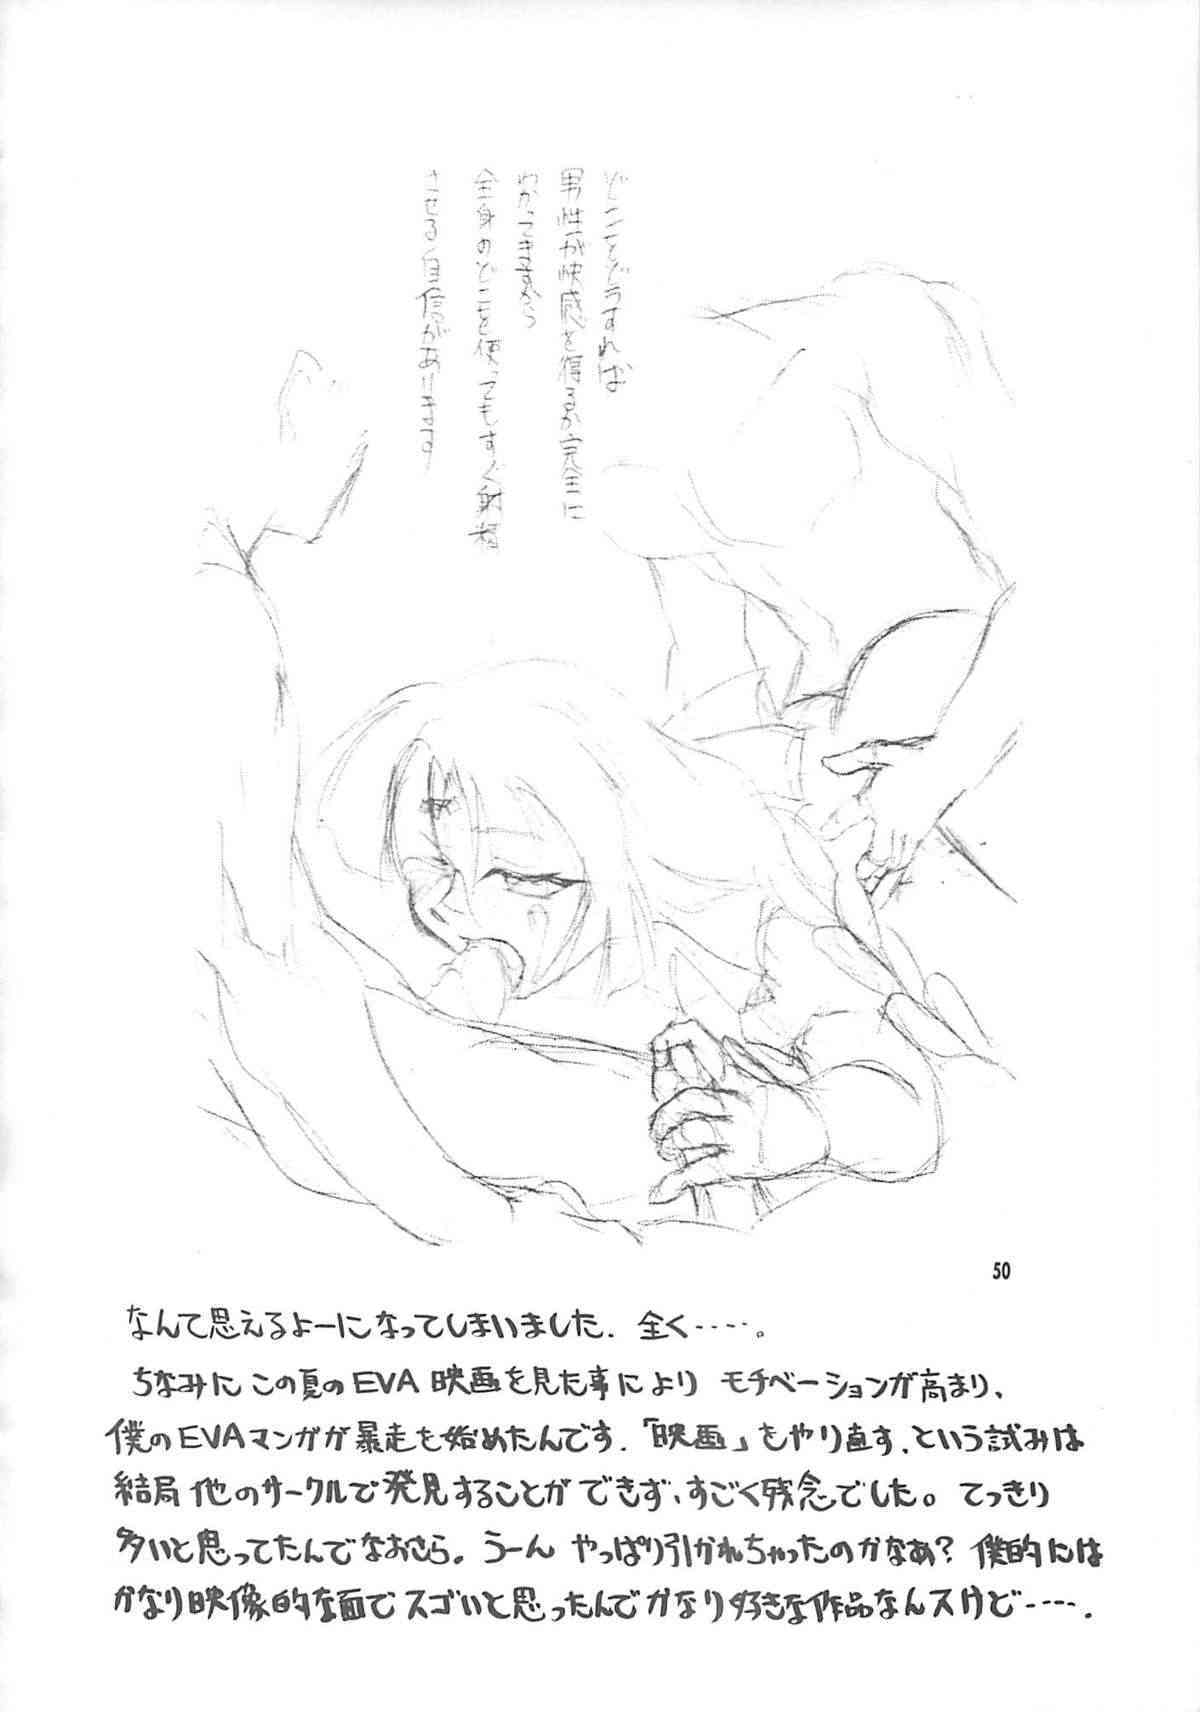 どこをどうすれば
男性が快感を得るか完全に
わかってきますから
全身のどこを使ってもすぐ射精
させる自信があります
50
なんて思えるよーになってしまいました. 全く‥‥‥。
ちなみに この夏の EVA 映画を見た事により モチベーションが高まり、
僕の EVA マンガが暴走を始めたんです.「映画」をやり直す、という試みは
結局 他のサークルで発見することができず、すごく残念でした。てっきり
多いと思ってたんでなおさら。うーん やっぱり引かれちゃったのかなあ? 僕的には
かなり映像的な面でスゴいと思ったんでかなり好きな作品なんスけど‥‥‥.